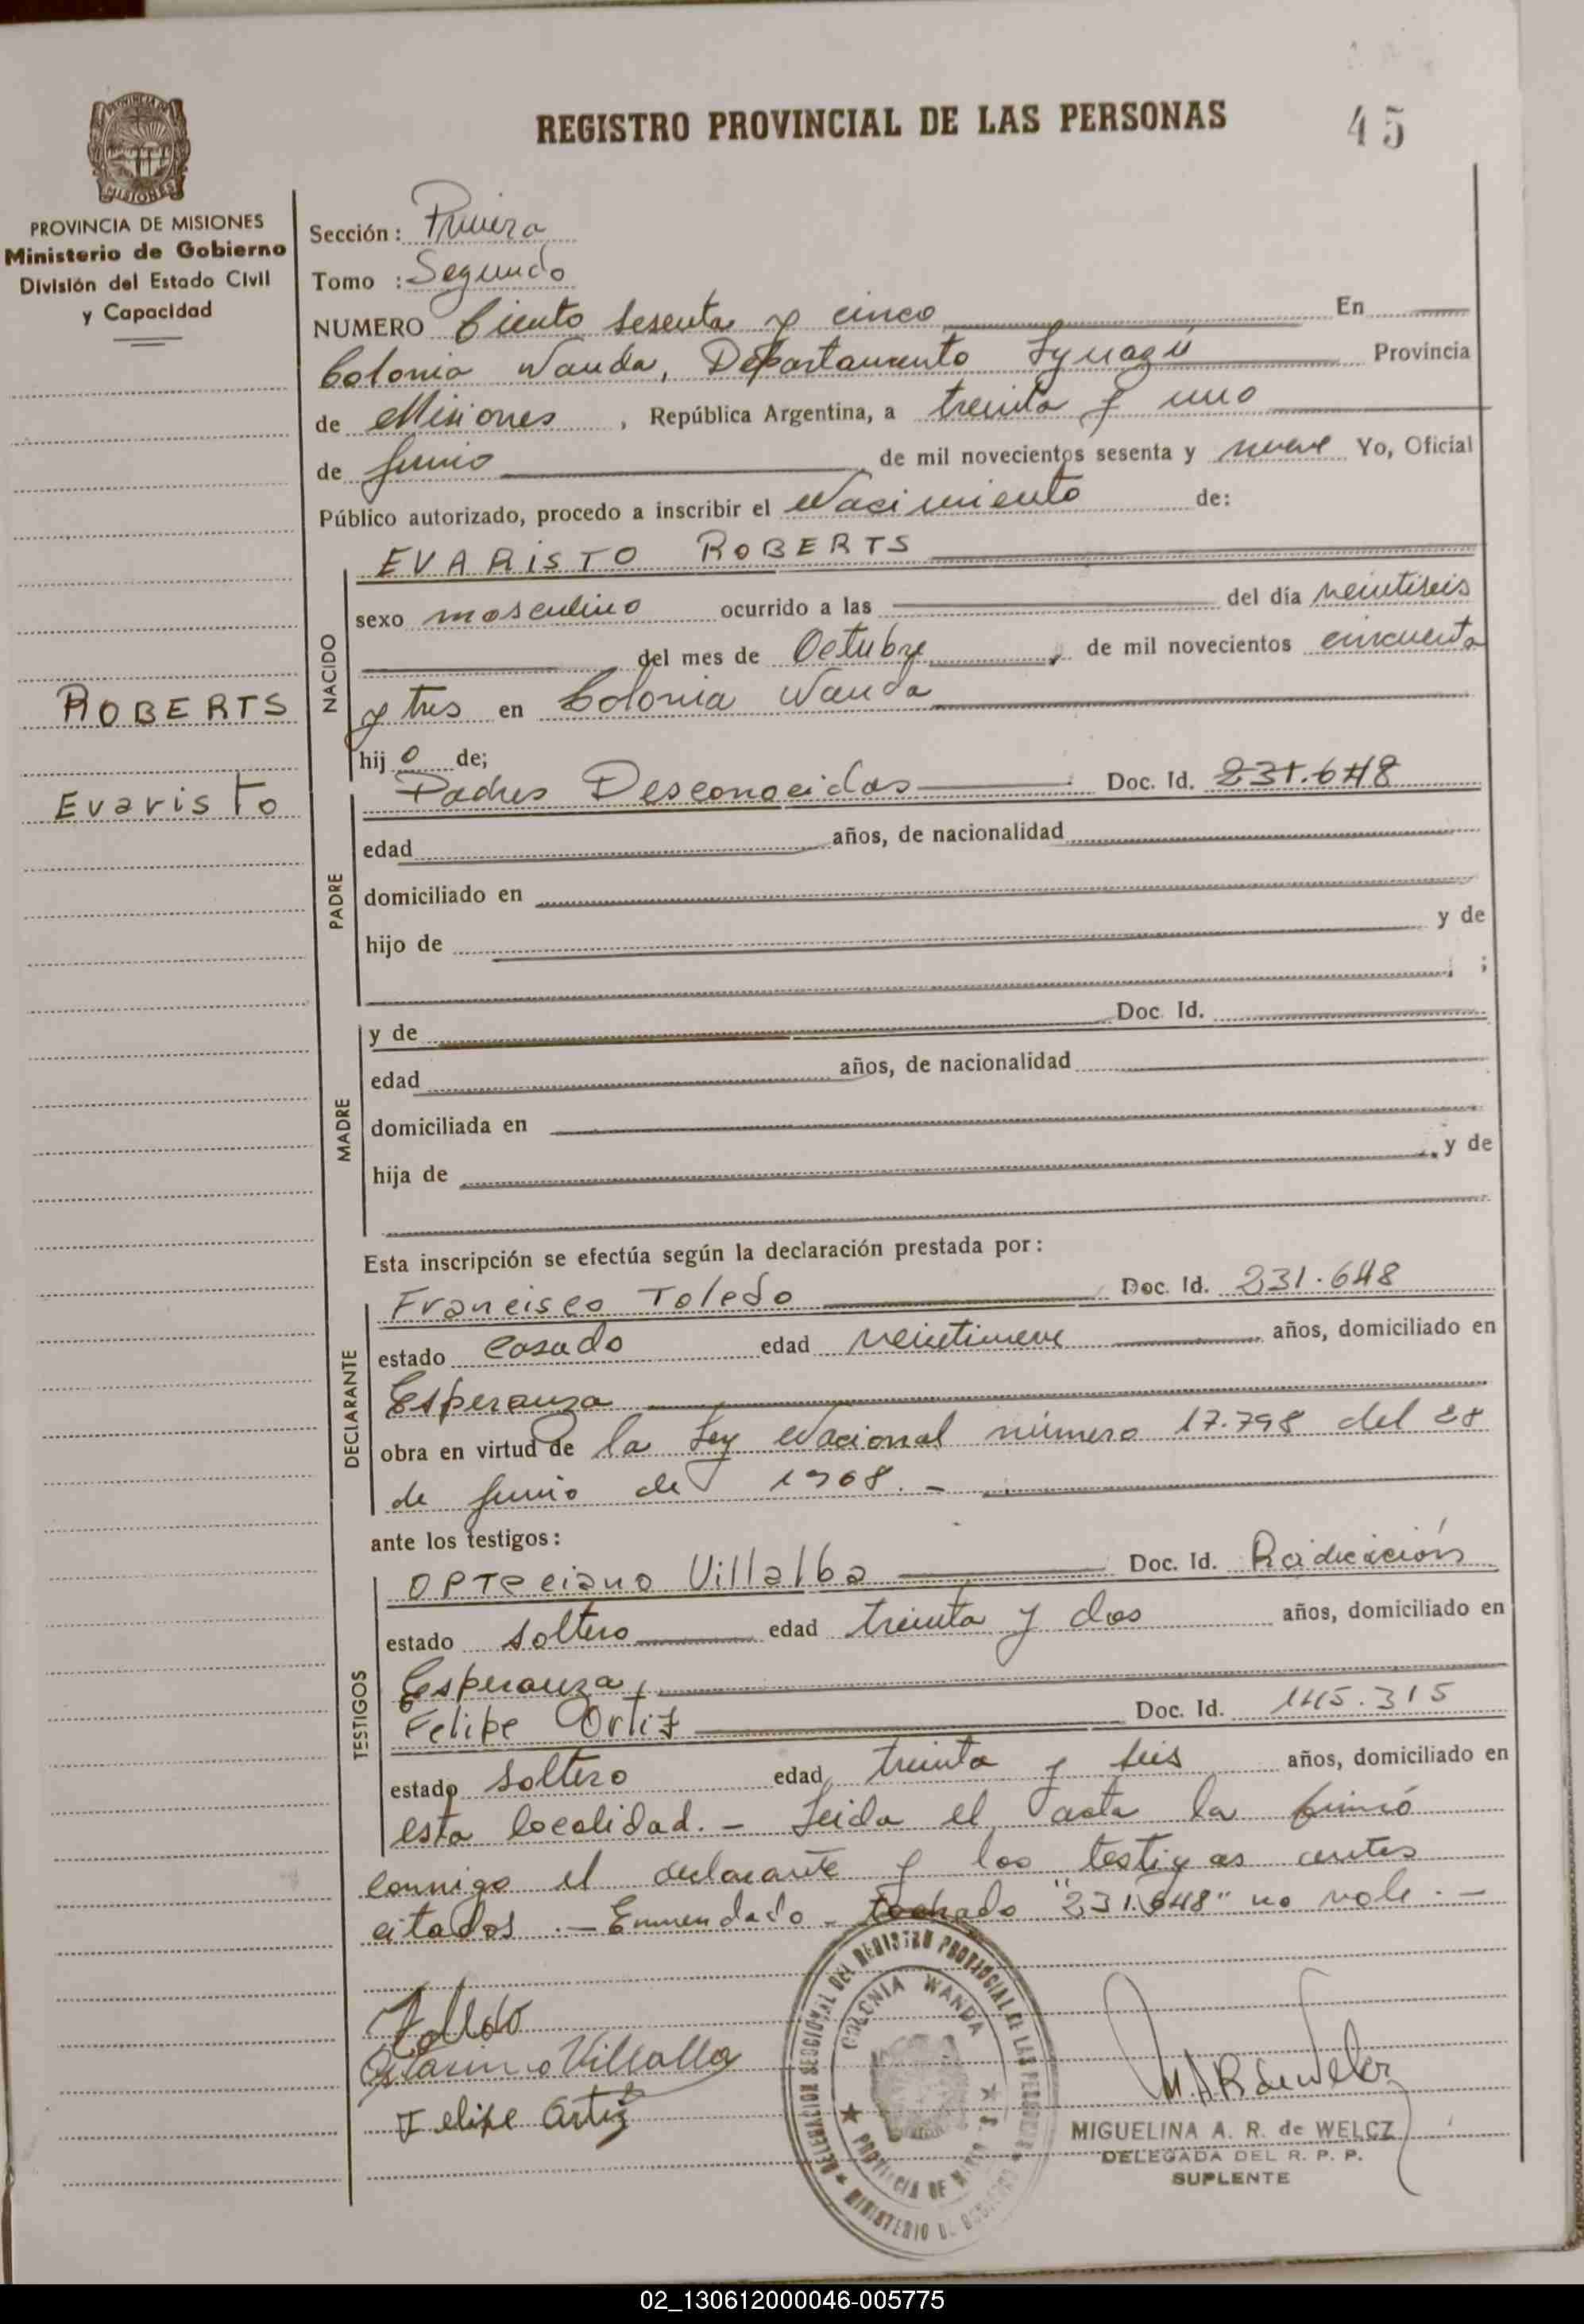 REGISTRO PROVINCIAL DE LAS PERSONAS
45
PROVINCIA DE MISIONES
PROVINCIA DE MISIONES
Ministerio de Gobierno
División del Estado Civil
y Capacidad
Sección: Primera
Tomo : Segundo
NUMERO Ciento sesenta y cinco En
Colonia Wanda, Departamento Iguazú Provincia
de Misiones, República Argentina, a treinta y uno
de Junio de mil novecientos sesenta y nueve Yo, Oficial
Público autorizado, procedo a inscribir el Nacimiento de:
NACIDO
EVARISTO ROBERTS
sexo masculino ocurrido a las del día veintiseis
del mes de Octubre, de mil novecientos cincuenta
y tres en Colonia Wanda
hij o de;
ROBERTS
Evaristo
PADRE
Padres Desconocidos Doc. Id. 231.648
edad años, de nacionalidad
domiciliado en
hijo de y de
;
MADRE
y de Doc. Id.
edad años, de nacionalidad
domiciliada en
hija de y de
Esta inscripción se efectúa según la declaración prestada por:
DECLARANTE
Francisco Toledo Doc. Id. 231.648
estado casado edad veintinueve años, domiciliado en
Esperanza
obra en virtud de la Ley Nacional número 17.798 del 28
de Junio de 1968.-
ante los testigos:
TESTIGOS
Villalba Doc. Id. Radicación
estado soltero edad treinta y dos años, domiciliado en
Esperanza
Felipe Ortiz Doc. Id. 145.315
estado soltero edad treinta y seis años, domiciliado en
esta localidad.- Leida el acta la firmó
conmigo el declarante y los testigos antes
citados.- Enmendado - tachado "231.648" no vale.-
Toledo
Villalba
Felipe Ortiz
DELEGACION SECCIONAL DEL REGISTRO PROVINCIAL DE LAS PERSONAS
COLONIA WANDA
PROVINCIA DE MISIONES
MINISTERIO DE GOBIERNO
M.A.R de Welcz
MIGUELINA A. R. de WELCZ
DELEGADA DEL R. P. P.
SUPLENTE
02_130612000046-005775